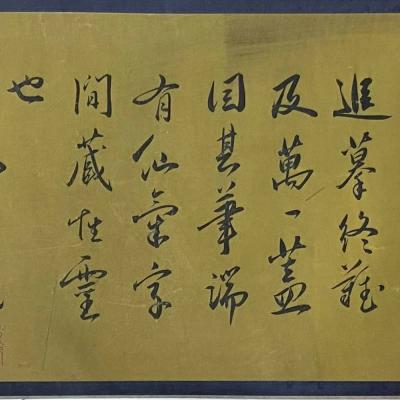 追摹終難
及萬一蓋
因其筆端
有仙氣字
間藏性靈
也